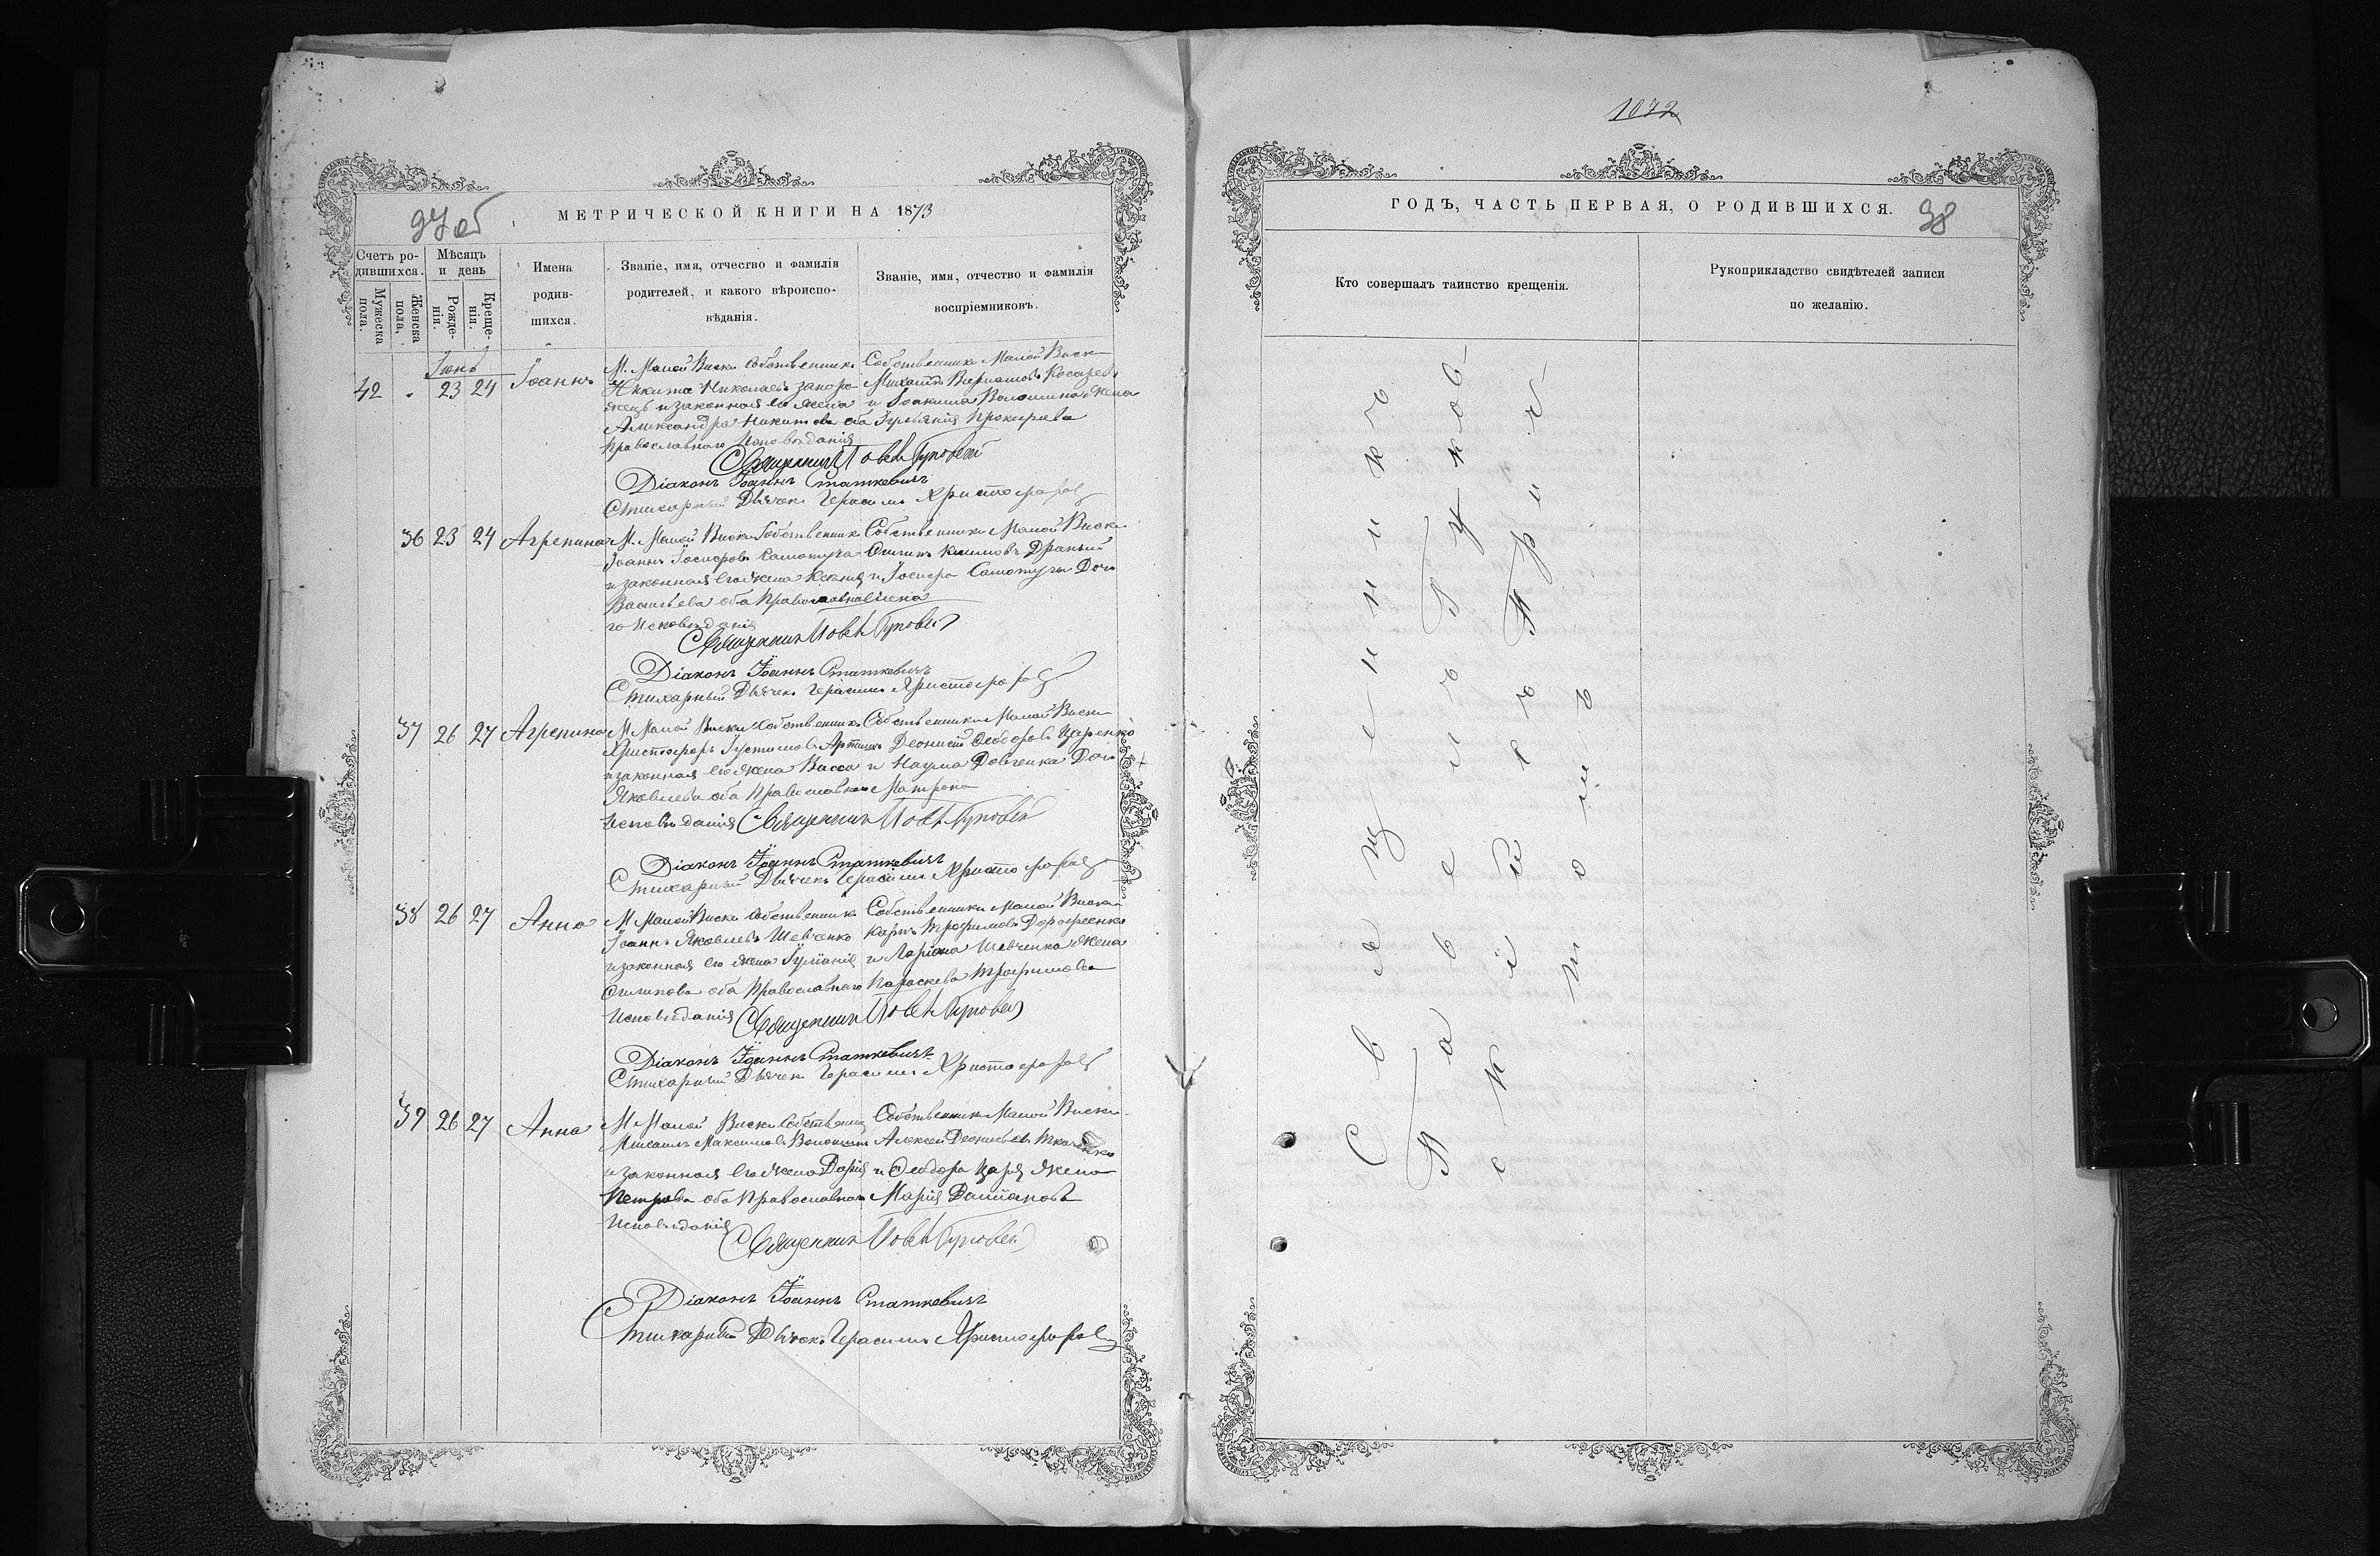 97 об
МЕТРИЧЕСКОЙ КНИГИ НА 1873
Счетъ ро-
дившихся.
Мѣсяцъ
и день
Мужеска
пола.
Женска
пола.
Рожде-
нія.
Креще-
нія.
Имена
родив-
шихся.
Званіе, имя, отчество и фамилія
родителей, и какого вѣроиспо-
вѣданія.
Званіе, имя, отчество и фамилія
воспріемниковъ.
Іюнь
42 23 24 Іоаннъ
М. Малой Виски Собственникъ
Никита Николаевъ Запоро
жецъ и законная его жена
Александра Никитова оба
Православнаго Исповѣданія
Собственники Малой Виски
Михаилъ Косаревъ
и Іоакима Волошина жена
Іуліянія Прокофьева
Священникъ
Діаконъ Іоаннъ Статкевичъ
Стихарный Дьячекъ Герасимъ Христофоровъ
36 23 24 Агрепина
М. Малой Виски Собственникъ
Іоаннъ Іосифовъ Самотуга
и законная его жена Ксенія
Васильева оба Православна
го Исповѣданія
Собственники Малой Виски
Климовъ Драный
и Іосифа Самотуги Дочь
Священникъ
Діаконъ Іоаннъ Статкевичъ
Стихарный Дьячекъ Герасимъ Христофоровъ
37 26 27 Агрепина
М Малой Виски Собственникъ
Христофоръ
и законная его жена Васса
Яковлева оба Православнаго
Исповѣданія
Собственники Малой Виски
Деонисій Ѳеодоровъ Царенко
и Наума Довгенка Дочь
Матрона
Священникъ
Діаконъ Іоаннъ Статкевичъ
Стихарный Дьячекъ Герасимъ Христофоровъ
38 26 27 Анна
М Малой Виски Собственникъ
Іоаннъ Яковлевъ Шевченко
и законная его жена Іуліанія
оба Православнаго
Исповѣданія
Собственники Малой Виски
Карпъ Трофимовъ Дорофеенко
и Ларіона Шевченка жена
Параскева Трофимова
Священникъ
Діаконъ Іоаннъ Статкевичъ
Стихарный Дьячекъ Герасимъ Христофоровъ
39 26 27 Анна
М Малой Виски Собственникъ
Михаилъ Максимовъ
и законная его жена Дарія
Петрова оба Православнаго
Исповѣданія
Собственники Малой Виски
Алексѣй Деонисьевъ Ткаченко
и Ѳеодора Царя жена
Марія Даміанова
Священникъ
Діаконъ Іоаннъ Статкевичъ
Стихарный Дьячекъ Герасимъ Христофоровъ
1072
ГОДЪ, ЧАСТЬ ПЕРВАЯ, О РОДИВШИХСЯ.
98
Кто совершалъ таинство крещенія.
Рукоприкладство свидѣтелей записи
по желанію.
Священникъ
Павелъ
скій съ При
томъ